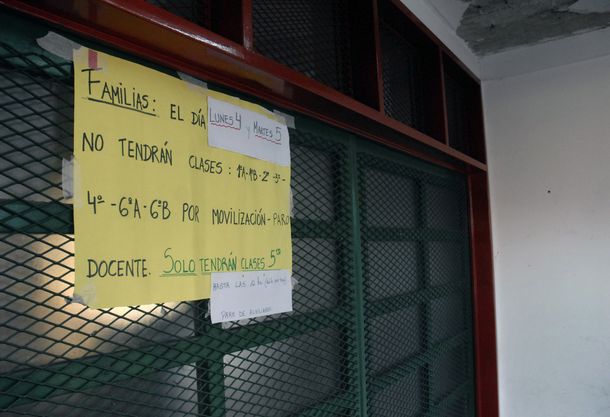 FAMILIAS: EL DÍA LUNES 4 y MARTES 5
NO TENDRÁN CLASES: 1ºA-1ºB-2º-3º-
4º-6ºA-6ºB POR MOVILIZACIÓN-PARO
DOCENTE. SOLO TENDRÁN CLASES 5to
HASTA LAS 10 hs
PARO DE AUXILIARES